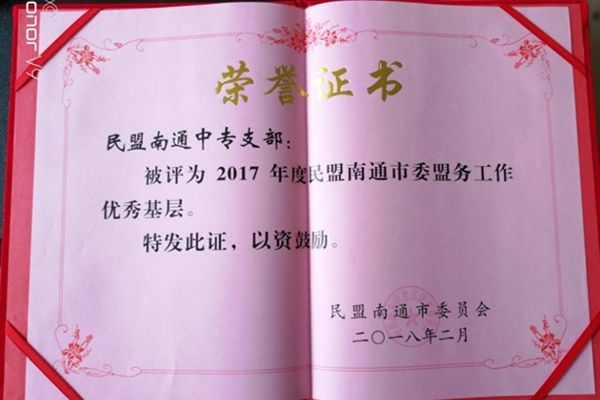 荣誉证书
民盟南通中专支部：
被评为 2017 年度民盟南通市委盟务工作
优秀基层。
特发此证，以资鼓励。
民盟南通市委员会
二〇一八年二月
onor V9